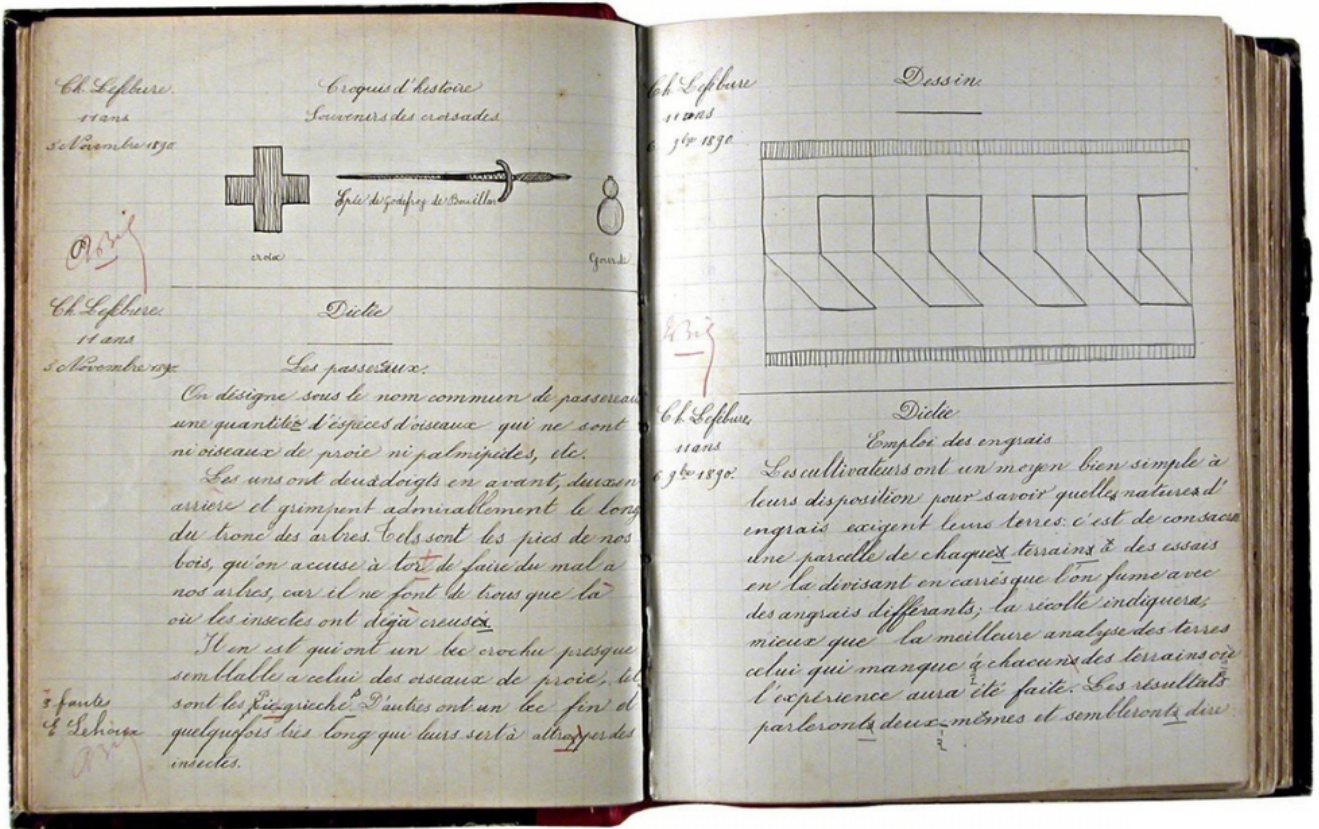 Ch. Lefebure.
11 ans
5 Novembre 1890
Croquis d'histoire
Souvenirs des croisades
Epée de Godefroy de Bouillon
croix
Gourde
Ch. Lefebure.
11 ans
5 Novembre 1890
Dictée
Les passereaux.
On désigne sous le nom commun de passereau
une quantitée d'éspèces d'oiseaux qui ne sont
ni oiseaux de proie ni palmipèdes, etc.
Les uns ont deux doigts en avant, deux en
arrière et grimpent admirablement le long
du tronc des arbres. Tels sont les pics de nos
bois, qu'on accuse à tort de faire du mal a
nos arbres, car il ne font de trous que là
où les insectes ont déjà creusés
Il en est qui ont un bec crochu presque
semblable a celui des oiseaux de proie, tel
sont les Pie-grieche. D'autres ont un bec fin et
quelquefois très long qui leurs sert à attrapper des
insectes.
3 fautes
E Lehoux
Ch. Lefebure
11 ans
6 9bre 1890
Dessin
Ch. Lefebure,
11 ans
6 9bre 1890.
Dictée
Emploi des engrais
Les cultivateurs ont un moyen bien simple à
leurs disposition pour savoir quelles natures d'
engrais exigent leurs terres: c'est de consacrer
une parcelle de chaques terrains à des essais
en la divisant en carrés que l'on fume avec
des angrais différants; la récolte indiquera,
mieux que la meilleure analyse des terres
celui qui manque à chacuns des terrains où
l'expérience aura été faite. Les résultats
parleronts deux-mêmes et sembleronts dire